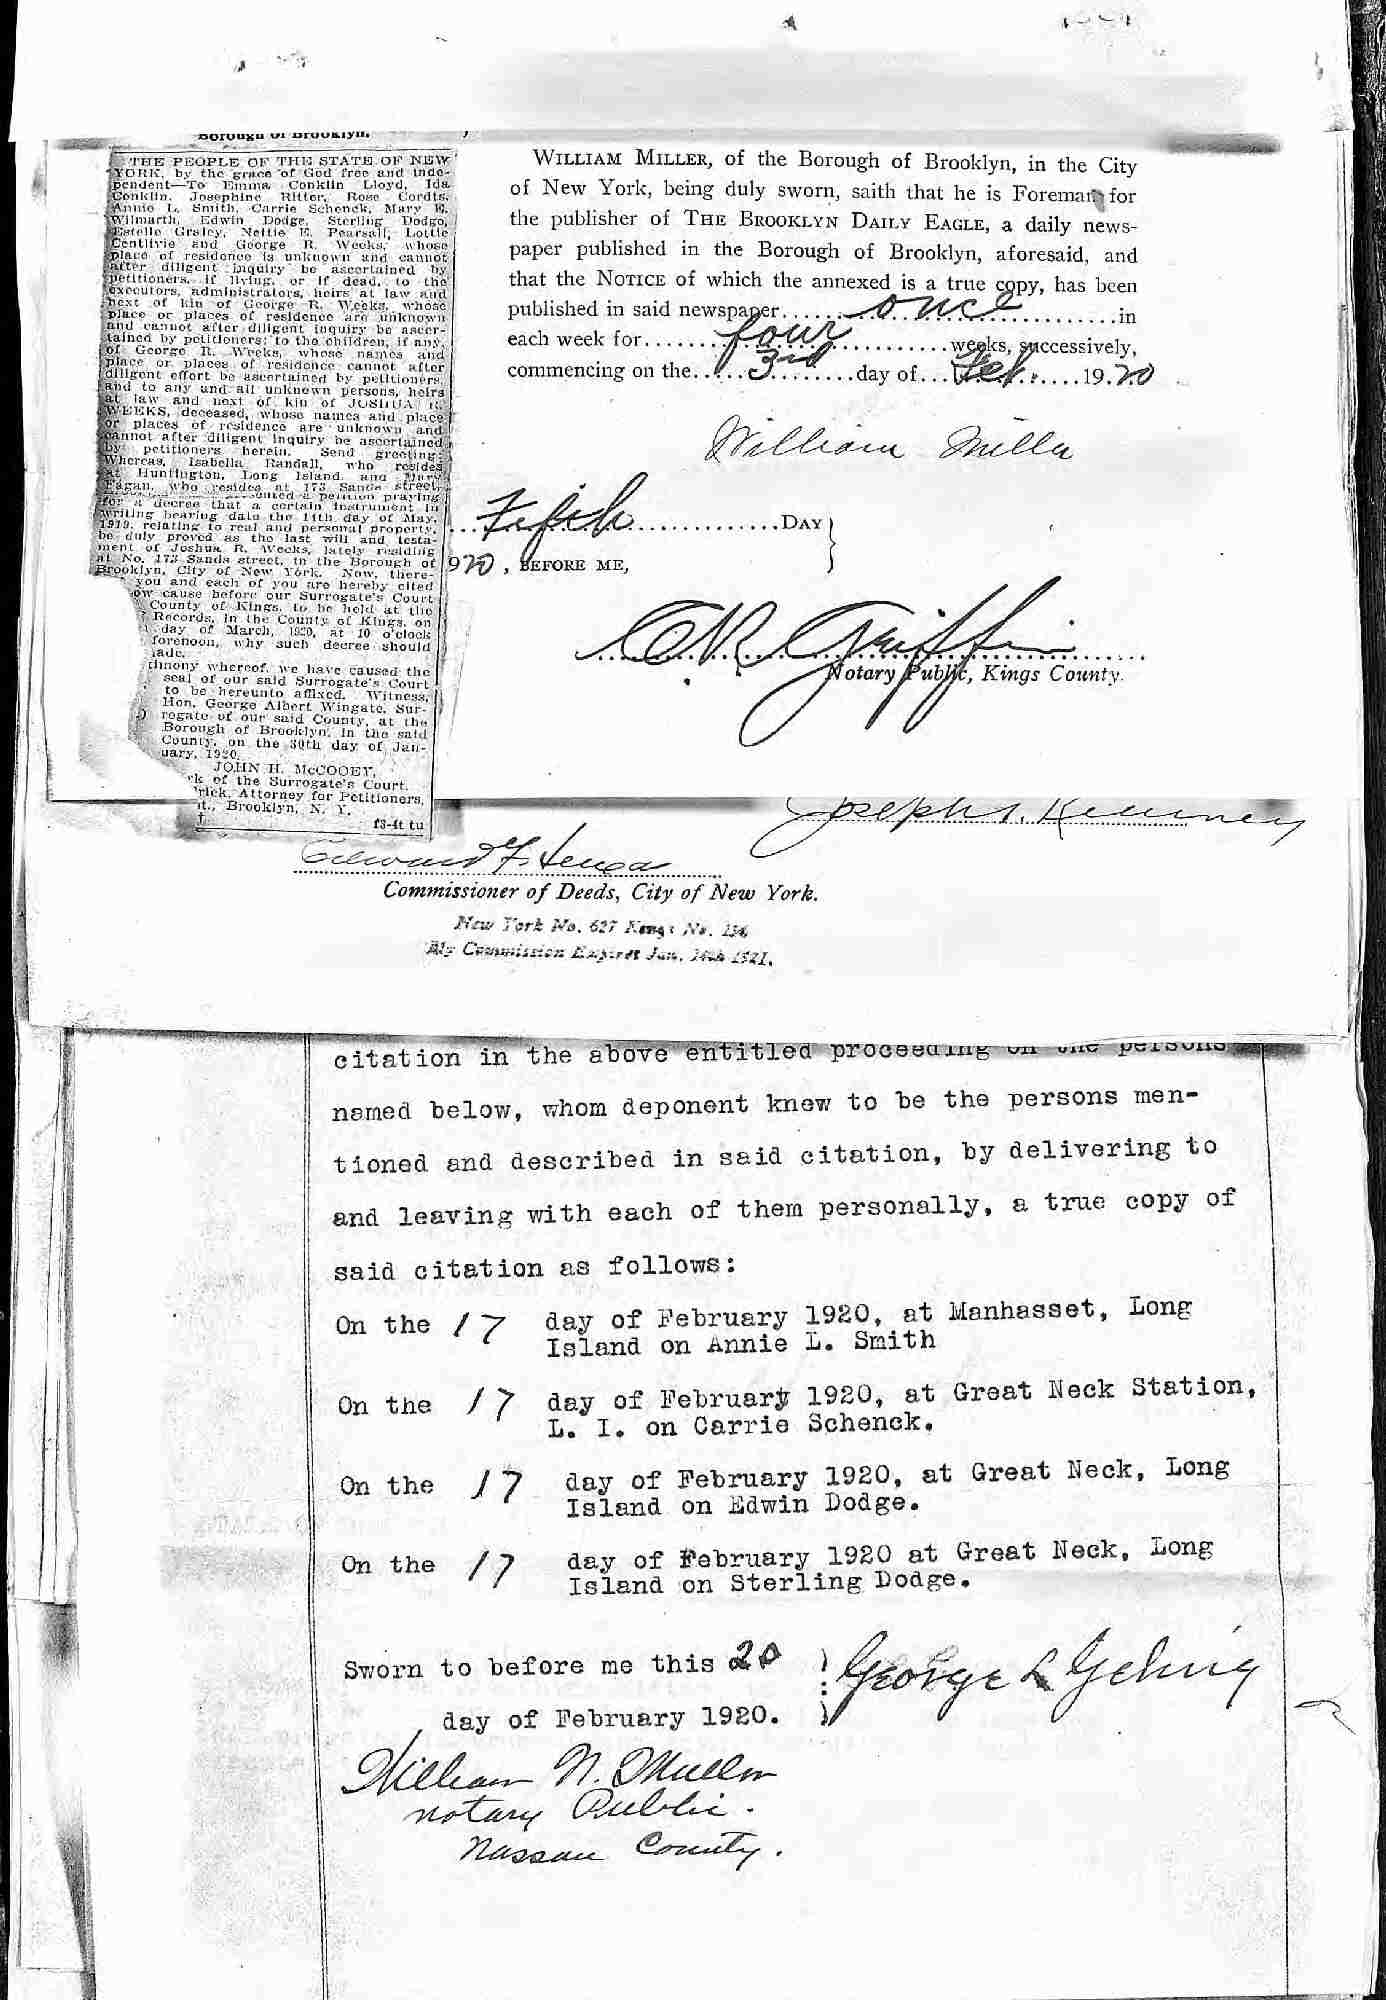 Borough of Brooklyn.
THE PEOPLE OF THE STATE OF NEW
YORK, by the grace of God free and inde-
pendent—To Emma Conklin Lloyd, Ida
Conklin, Josephine Ritter, Rose Cordts,
Annie L. Smith, Carrie Schenck, Mary E.
Wilmarth, Edwin Dodge, Sterling Dodge,
Estelle Nettie E. Pearsall, Lottie
Centlivre and George R. Weeks, whose
place of residence is unknown and cannot
after diligent inquiry be ascertained by
petitioners, if living, or if dead, to the
executors, administrators, heirs at law and
next of kin of George R. Weeks, whose
place or places of residence are unknown
and cannot after diligent inquiry be ascer-
tained by petitioners; to the children, if any,
of George R. Weeks, whose names and
place or places of residence cannot after
diligent effort be ascertained by petitioners,
and to any and all unknown persons, heirs
at law and next of kin of JOSHUA R.
WEEKS, deceased, whose names and place
or places of residence are unknown and
cannot after diligent inquiry be ascertained
by petitioners herein. Send greeting:
Whereas, Isabella Randall, who resides
at Huntington, Long Island and Mary
Fagan, who resides at 173 Sands street,
a petition praying
for a decree that a certain instrument in
writing bearing date the 11th day of May,
1919, relating to real and personal property,
be duly proved as the last will and testa-
ment of Joshua R. Weeks, lately residing
at No. 173 Sands street, in the Borough of
Brooklyn, City of New York. Now, there-
you and each of you are hereby cited
ow cause before our Surrogate's Court
County of Kings, to be held at the
Records, in the County of Kings, on
day of March, 1920, at 10 o'clock
forenoon, why such decree should
ade.
timony whereof, we have caused the
seal of our said Surrogate's Court
to be hereunto affixed. Witness,
Hon. George Albert Wingate, Sur-
rogate of our said County, at the
Borough of Brooklyn, in the said
County, on the 30th day of Jan-
uary, 1920.
JOHN H. McCOOEY,
rk of the Surrogate's Court.
rick, Attorney for Petitioners,
t., Brooklyn, N. Y.
f3-4t tu
WILLIAM MILLER, of the Borough of Brooklyn, in the City
of New York, being duly sworn, saith that he is Foreman for
the publisher of THE BROOKLYN DAILY EAGLE, a daily news-
paper published in the Borough of Brooklyn, aforesaid, and
that the NOTICE of which the annexed is a true copy, has been
published in said newspaper......once......in
each week for......four......weeks, successively,
commencing on the......3rd......day of...Feb.....1920
William Miller
...Fifth.............DAY
920, BEFORE ME,
C R Griffin
Notary Public, Kings County.
Joseph Kearney
Edward F.
Commissioner of Deeds, City of New York.
New York No. 627 Kings No.
My Commission Expires Jan. 14th 1921.
citation in the above entitled proceeding on the persons
named below, whom deponent knew to be the persons men-
tioned and described in said citation, by delivering to
and leaving with each of them personally, a true copy of
said citation as follows:
On the 17 day of February 1920, at Manhasset, Long
Island on Annie L. Smith
On the 17 day of February 1920, at Great Neck Station,
L. I. on Carrie Schenck.
On the 17 day of February 1920, at Great Neck, Long
Island on Edwin Dodge.
On the 17 day of February 1920 at Great Neck, Long
Island on Sterling Dodge.
Sworn to before me this 20
day of February 1920.
George L Gehrig
William N. Mullon
Notary Public.
Nassau County.